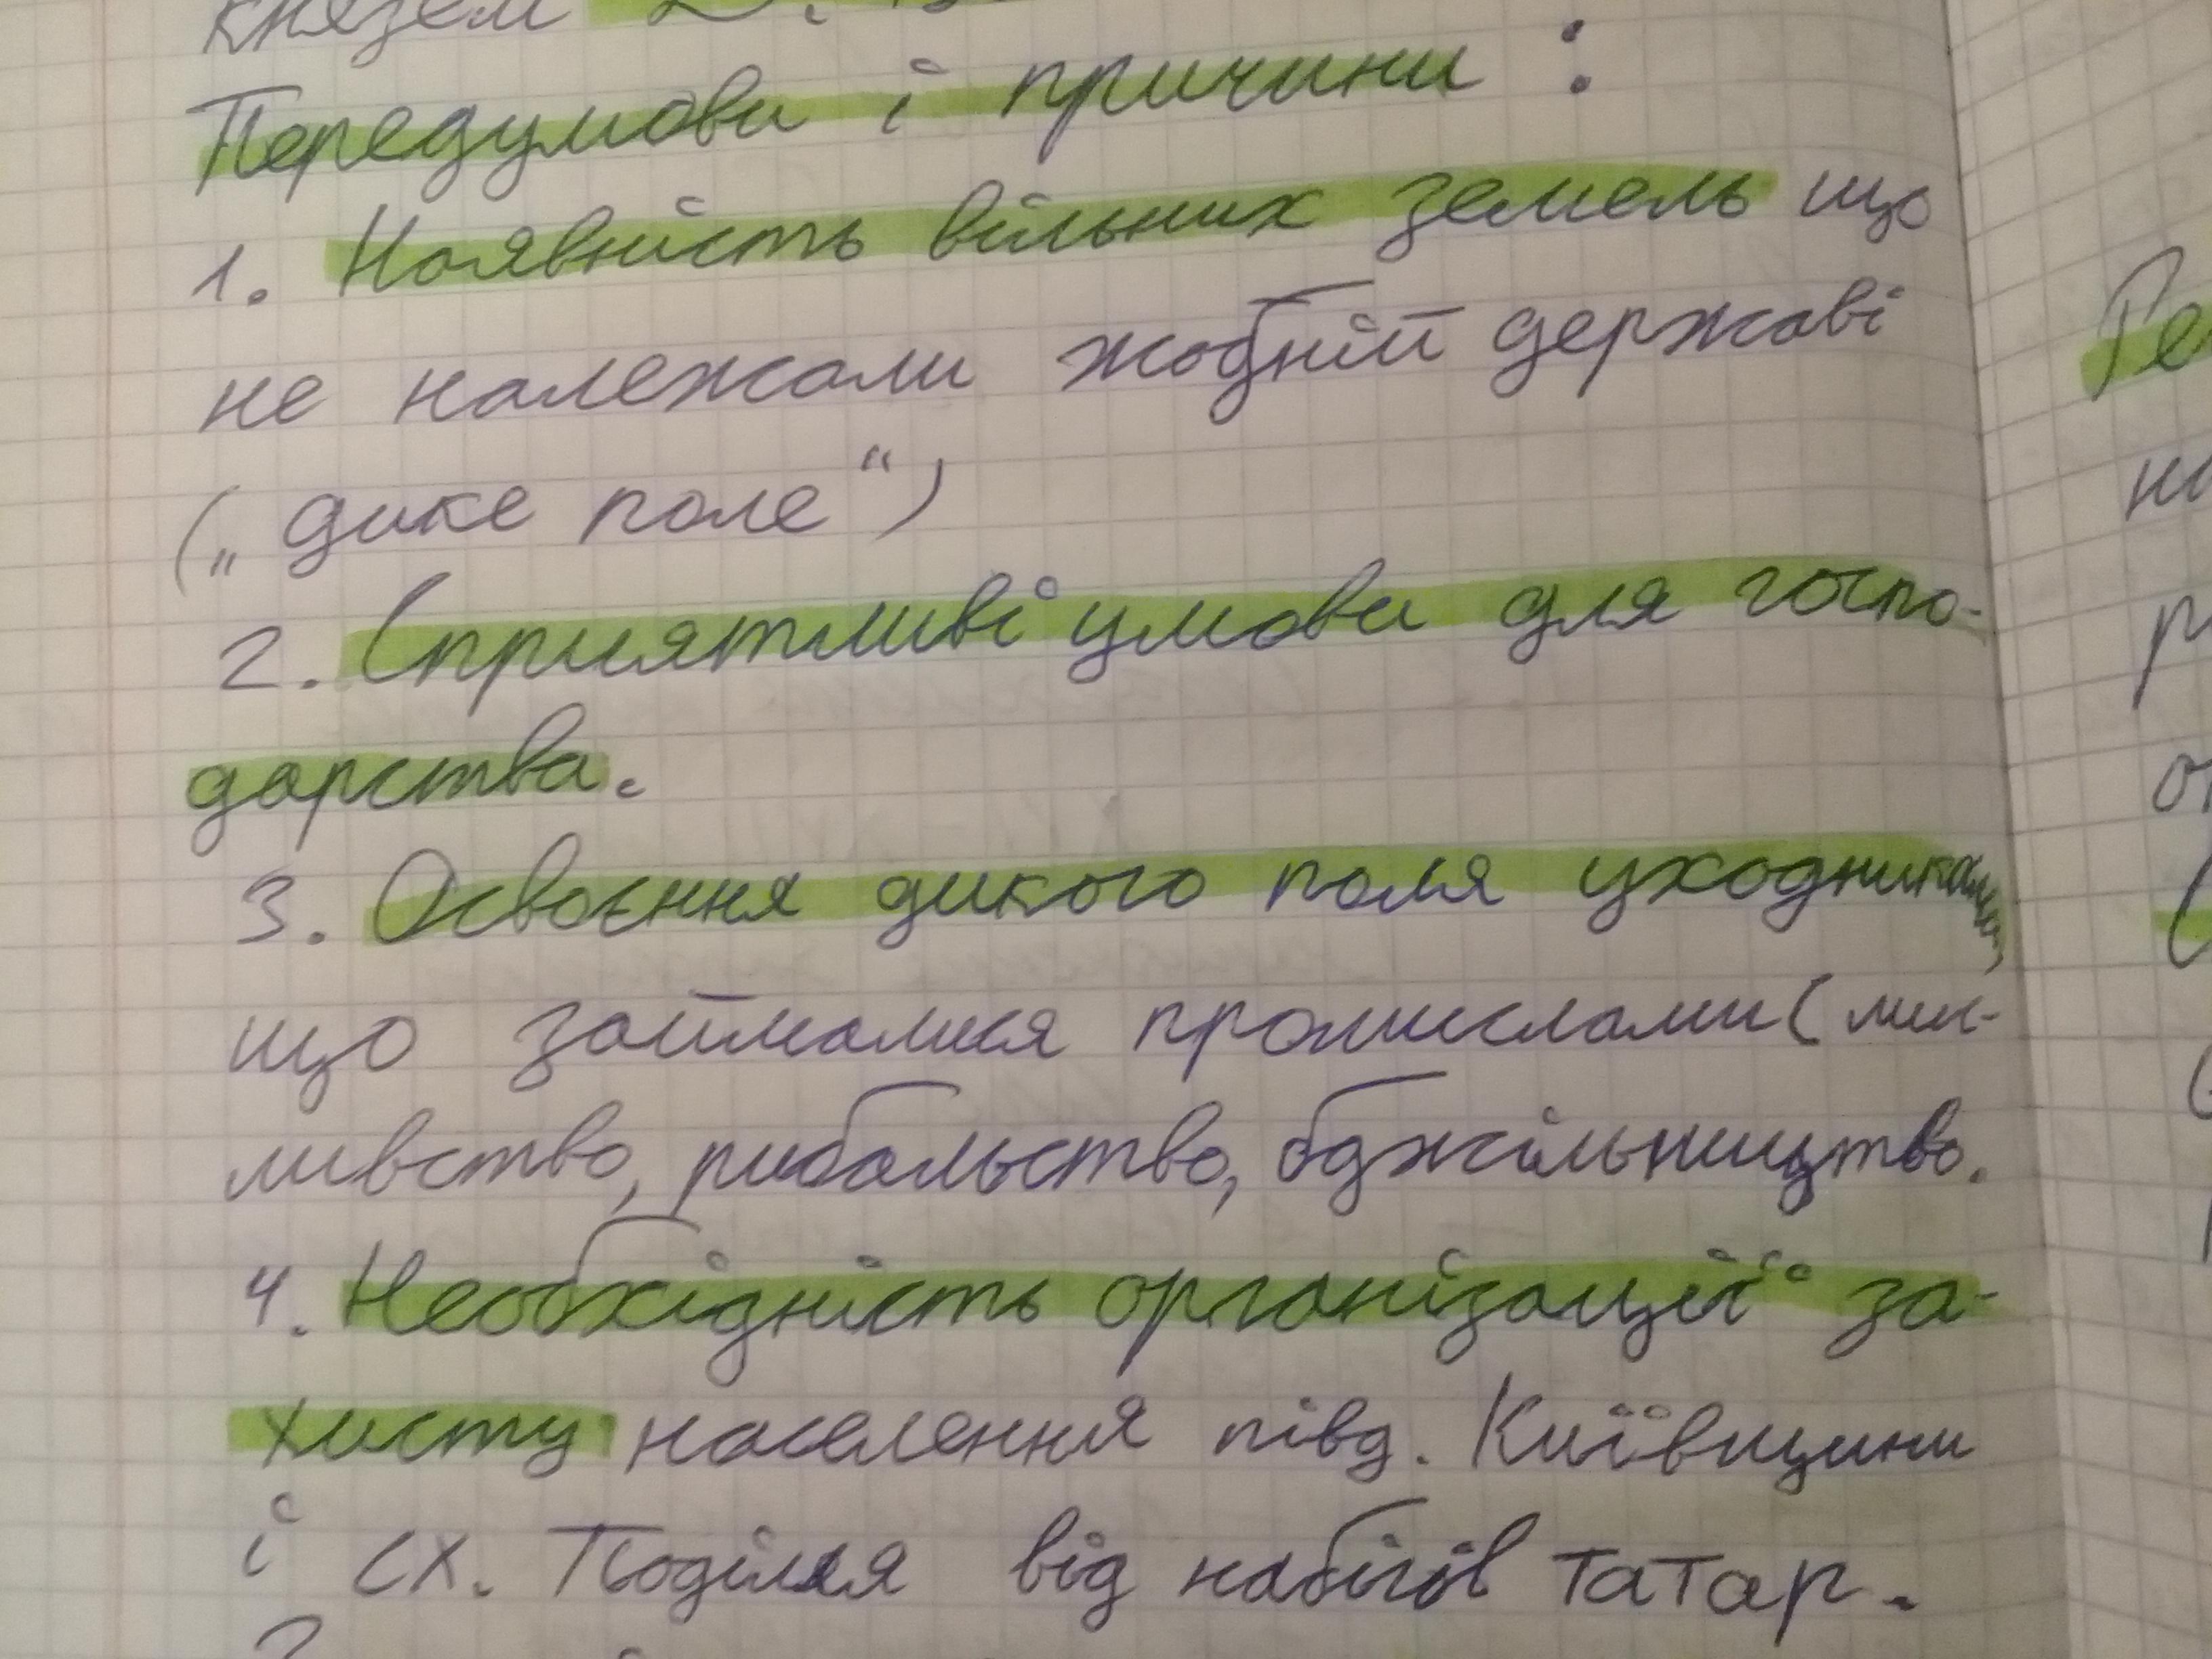 князем
Передумови і причини :
1. Наявність вільних земель що
не належали жодній державі
(„ дике поле “)
2. Сприятливі умови для госпо-
дарства.
3. Освоєння дикого поля уходниками,
що займалися промислами ( мис-
ливство, рибальство, бджільництво.
4. Необхідність організації за-
хисту населення півд. Київщини
і сх. Поділля від набігів татар.